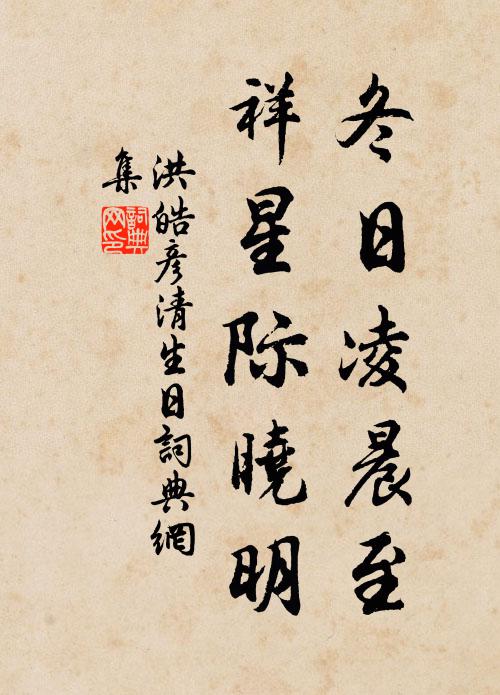 冬日凌晨至
祥星际曉明
洪皓彦清生日詞典網
集
詞典
网印